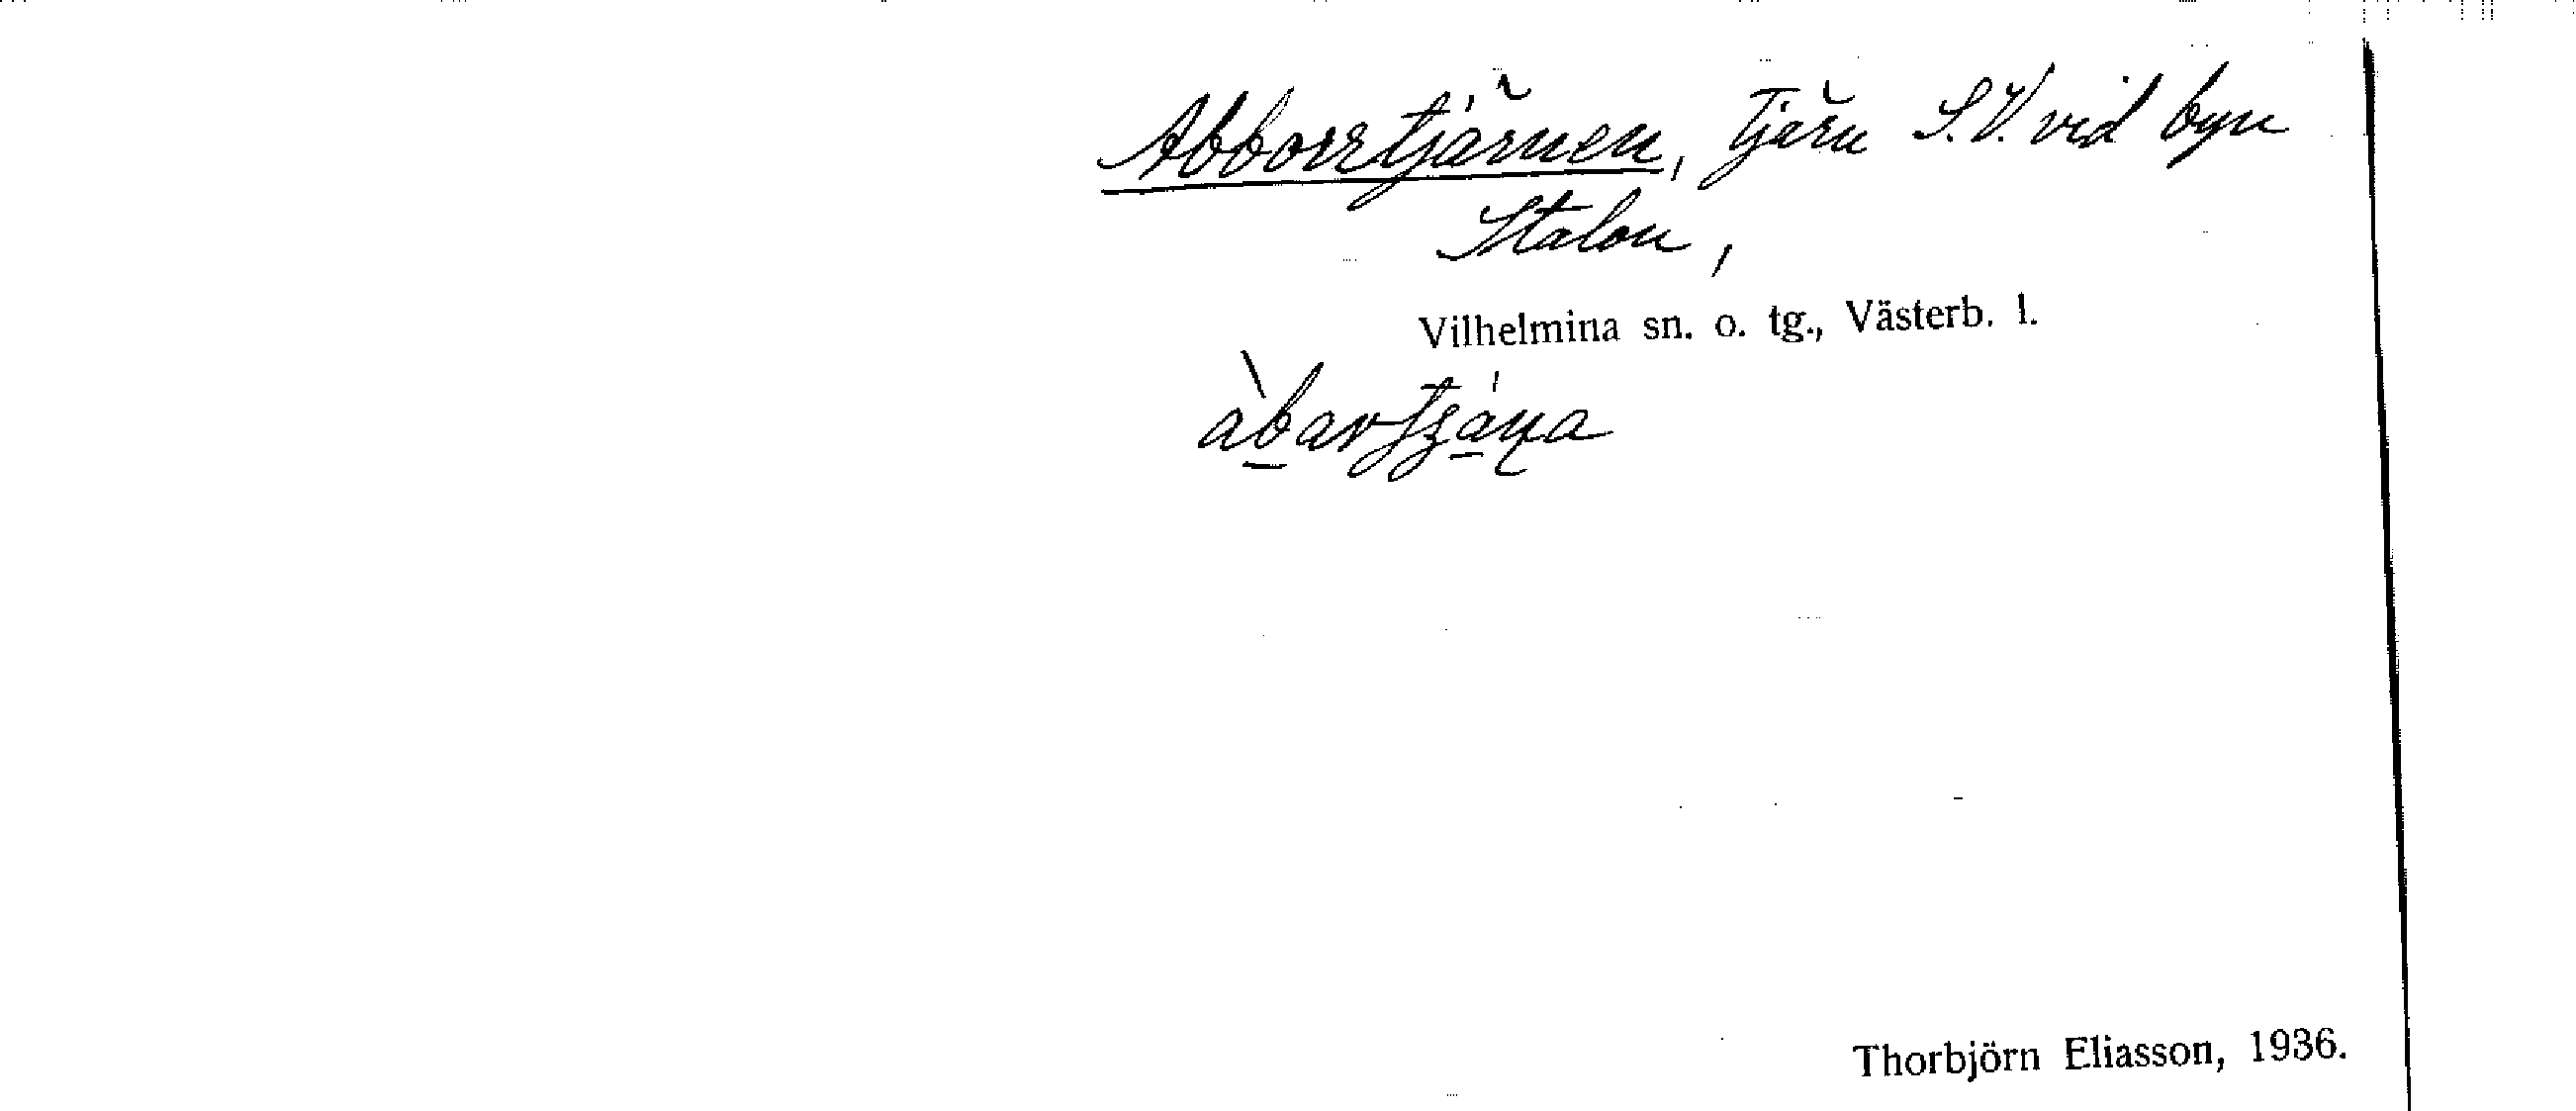 Abborrtjärnen, Tjärn S.V. vid byn
Stalon,
Vilhelmina sn. o. tg., Västerb. l.
Thorbjörn Eliasson, 1936.